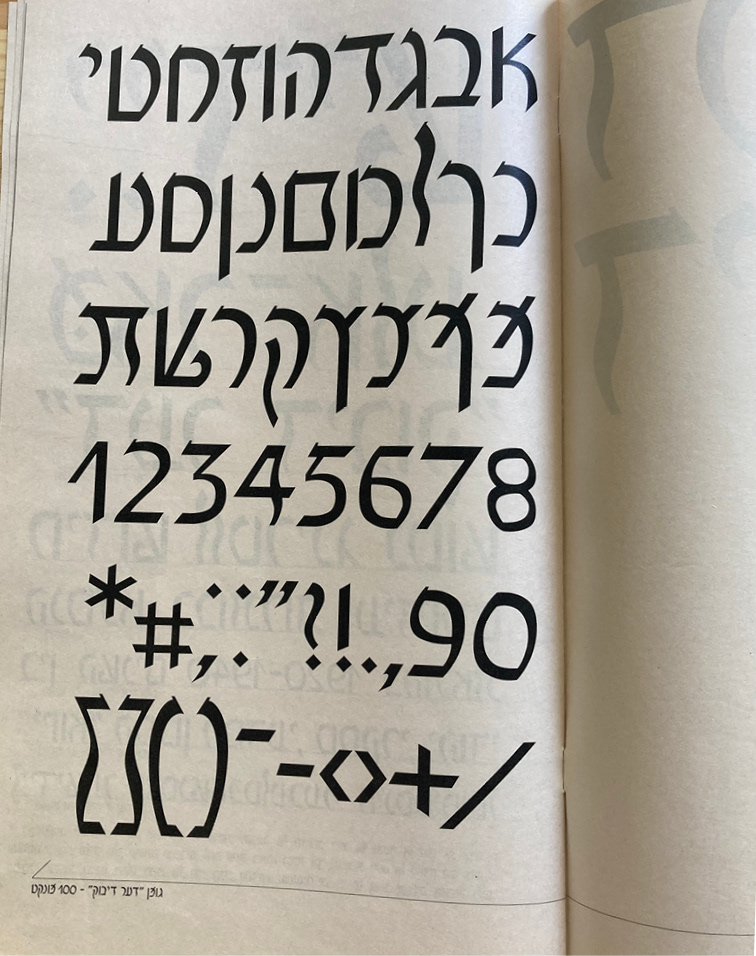 אבגדהוזחטי
כךלמםנןסע
פףצץקרשת
12345678
90,.!?”:;#*
/+<>-־()[]
גופן "דער דיבוק" - 100 פונקט